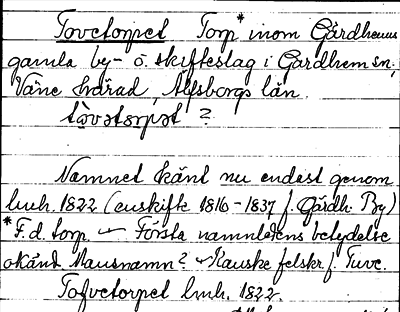 Tovetorpet Torp* inom Gärdhems
gamla by- o. skifteslag i Gärdhem sn.,
Väne härad, Älfsborgs län.
tåvətɔrpət ?
Namnet känt nu endast genom
lmh. 1822 (enskifte 1816-1837 f. Gärdh. By)
*F.d. torp. — Första namnledens betydelse
okänd. Mansnamn? Kanske felskr. f. Tuve.
Tofvetorpet lmh. 1822.